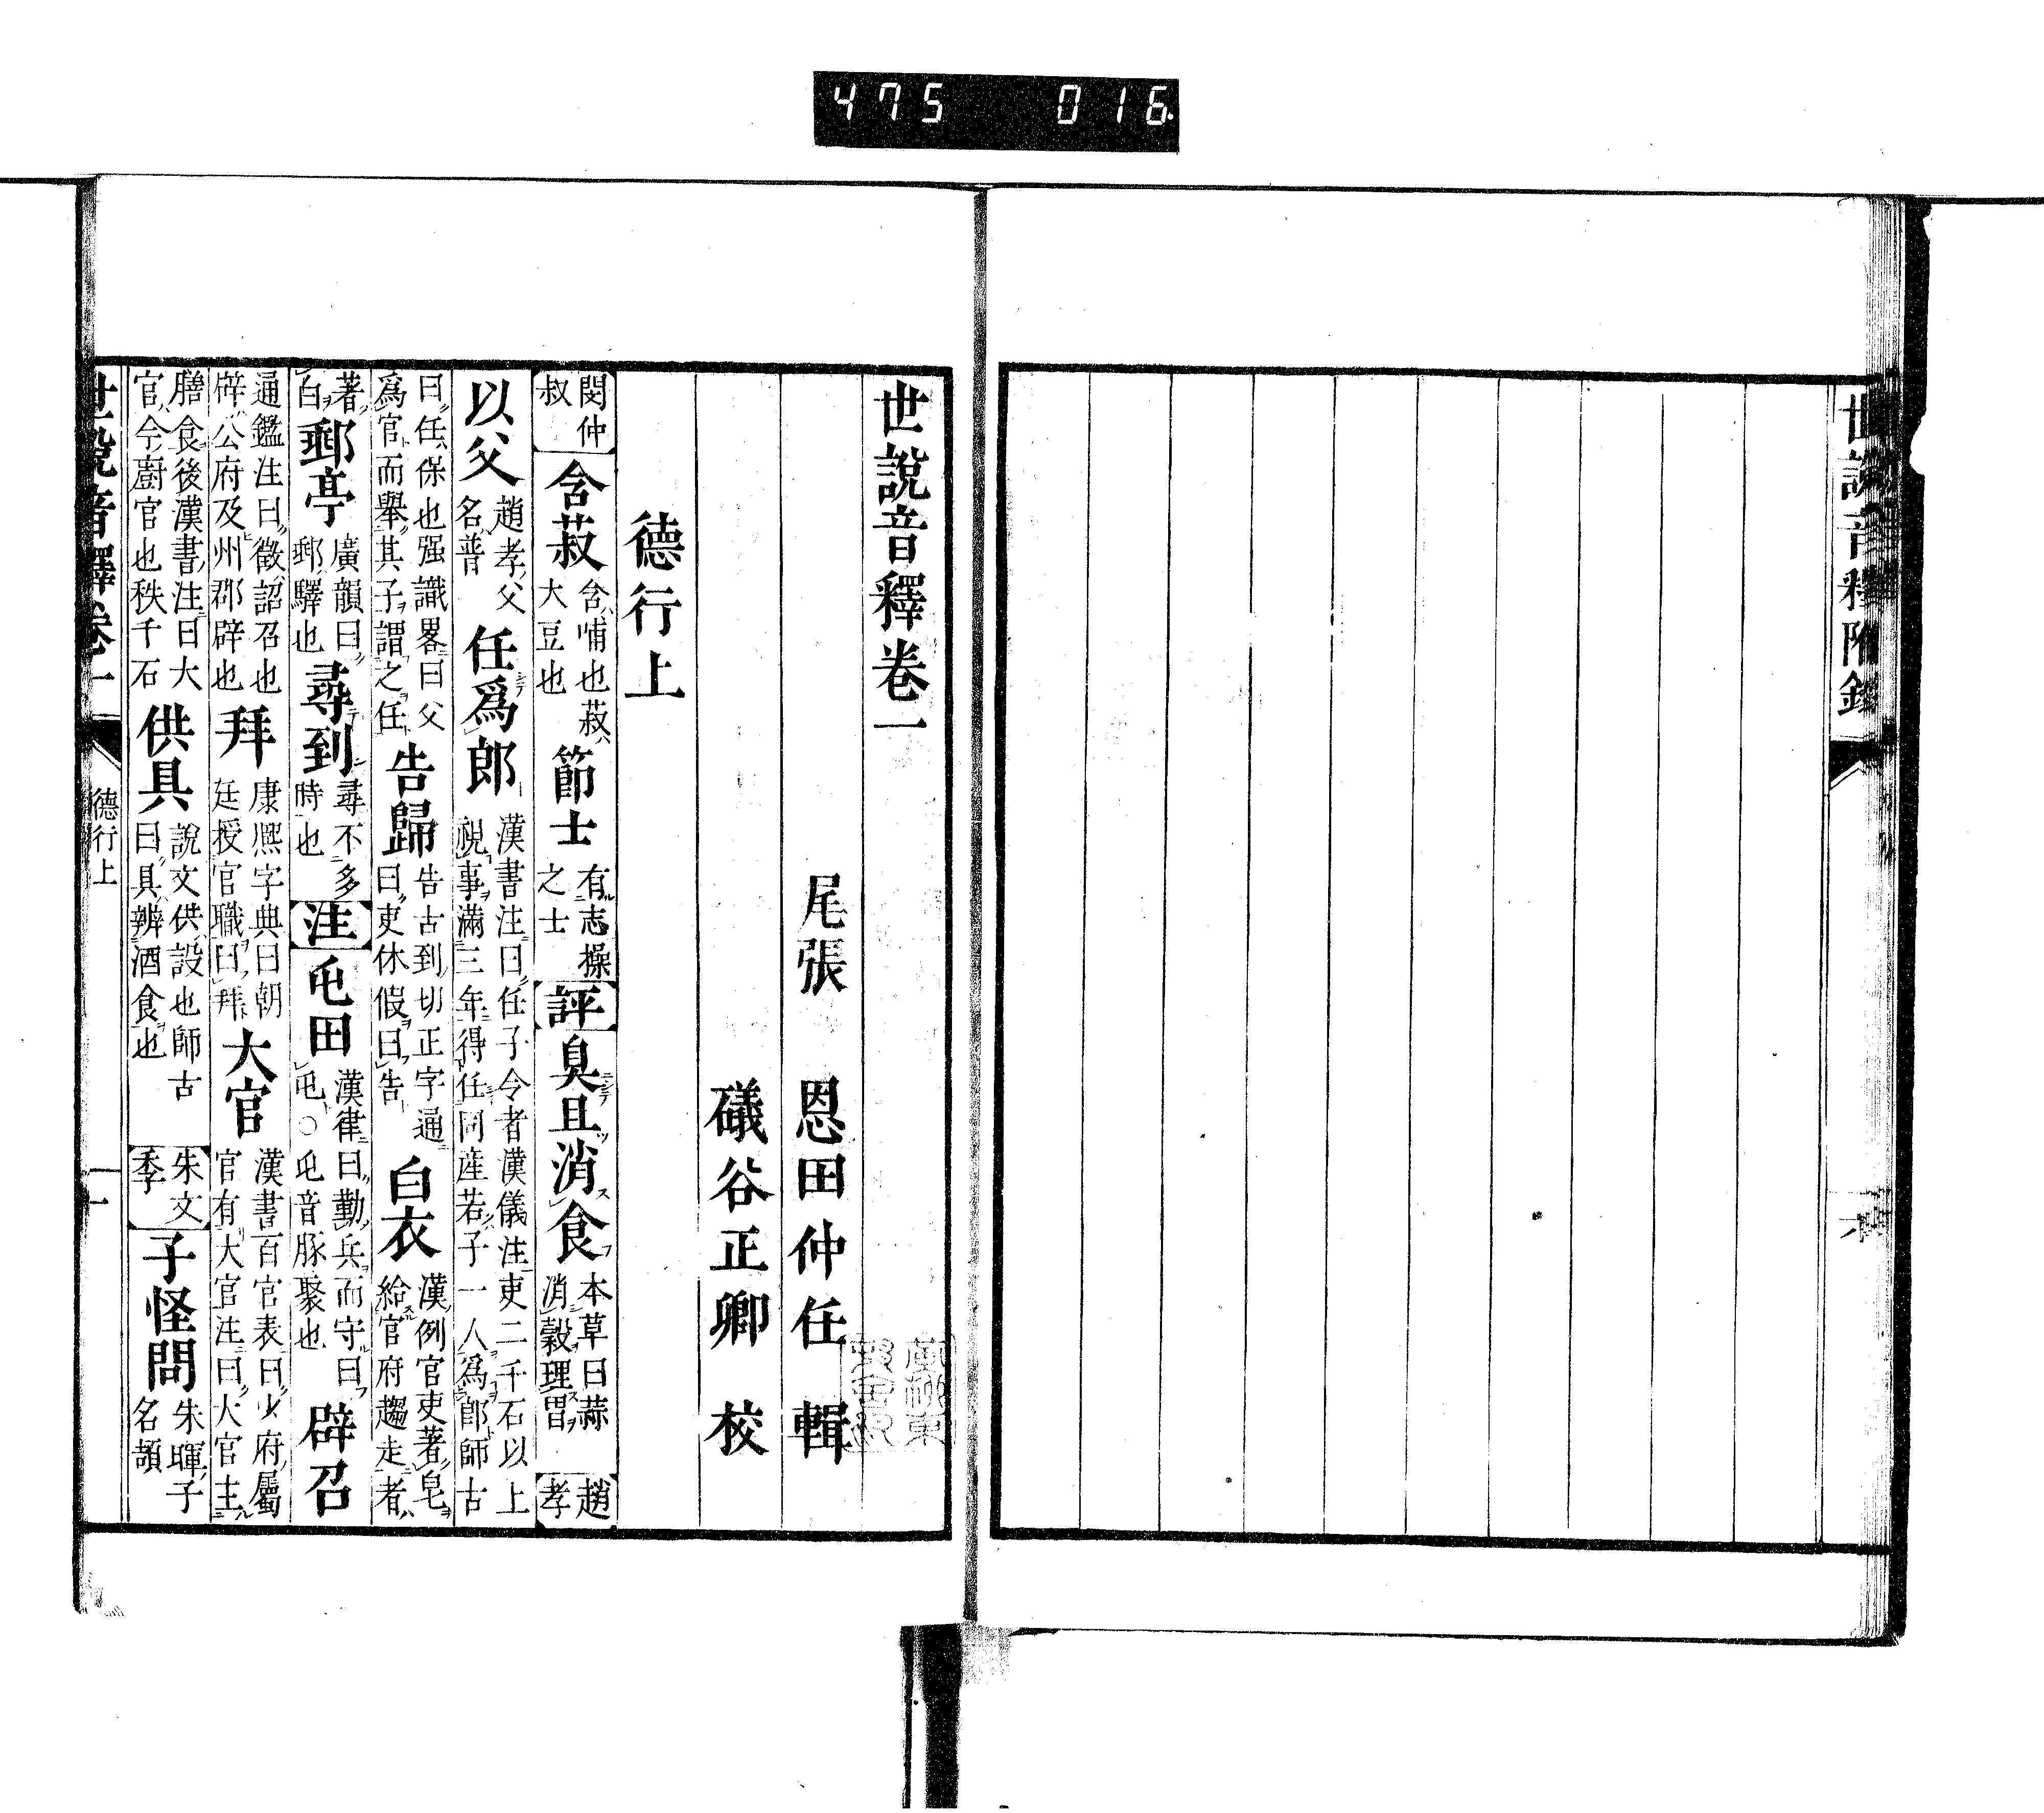 475 016
世說音釋附錄
六
世說音釋卷一
尾張 恩田仲任 輯
礒谷正卿 校
德行上
閔仲叔 含菽 含哺也菽大豆也 節士 有志操之士 評 臭且消食 本草曰蒜消穀理胃 趙孝
以父 趙孝父名普 任爲郎 漢書注曰任子令者漢儀注吏二千石以上視事滿三年得任同產若子一人爲郎師古
曰任保也强識畧曰父爲官而舉其子謂之任 告歸 告古到切正字通曰吏休假曰告 白衣 漢例官吏著皂給官府趨走者
著白 郵亭 廣韻曰郵驛也 尋到 尋不多時也 注 屯田 漢律曰勤兵而守曰屯○屯音豚聚也 辟召
通鑑注曰徵詔召也辟公府及州郡辟也 拜 康熈字典曰朝廷授官職曰拜 大官 漢書百官表曰少府屬官有大官注曰大官主
膳食後漢書注曰大官今廚官也秩千石 供具 說文供設也師古曰具辨酒食也 朱文季 子怪問 朱暉子名頡
世說音釋卷一
德行上
一